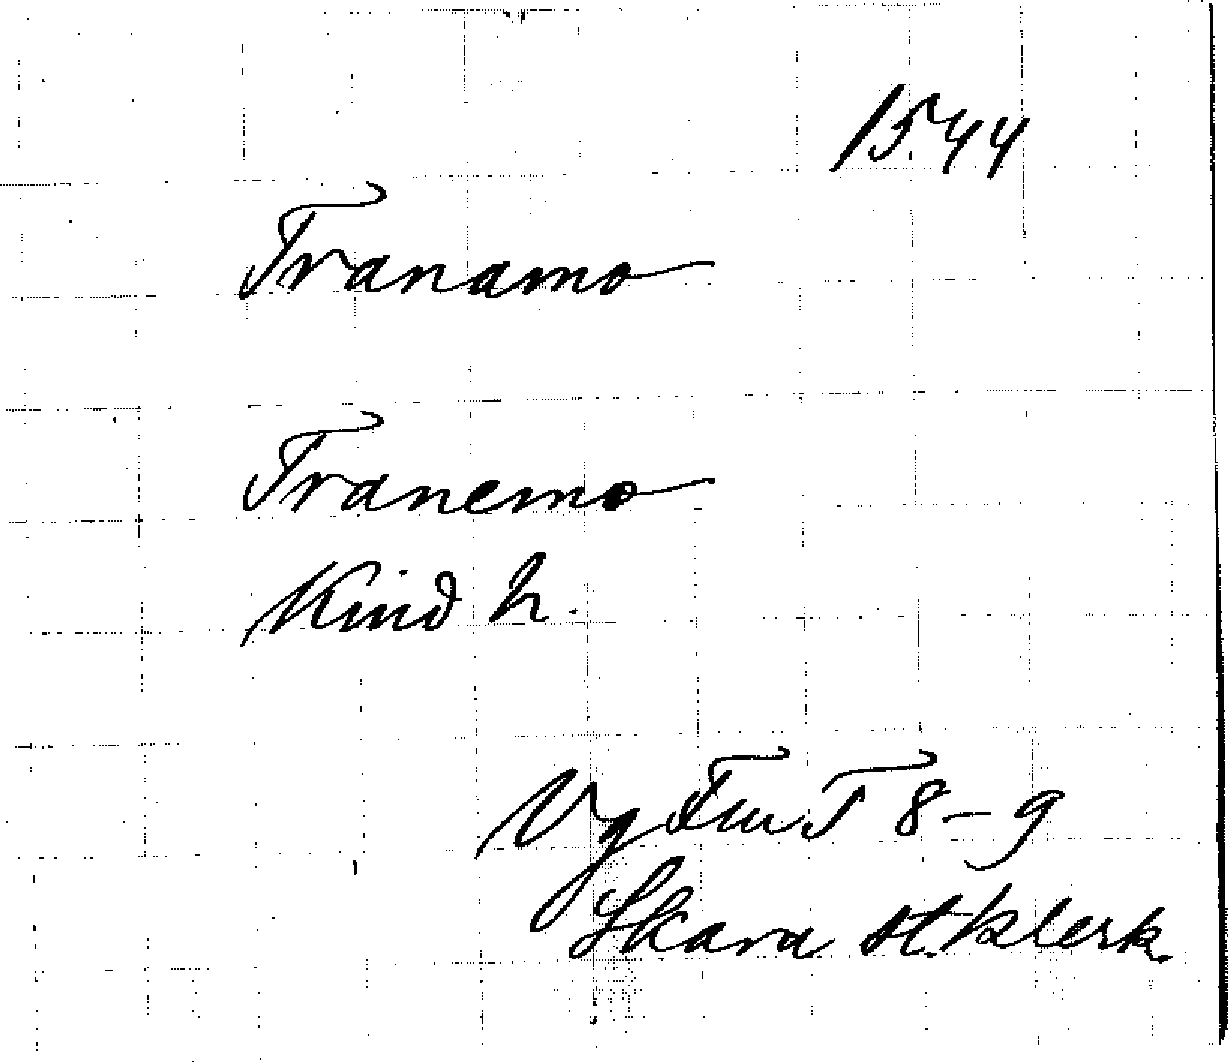 1544
Tranamo
Tranemo
Kind h.
Vg FmT 8-9
Skara st. klerk.